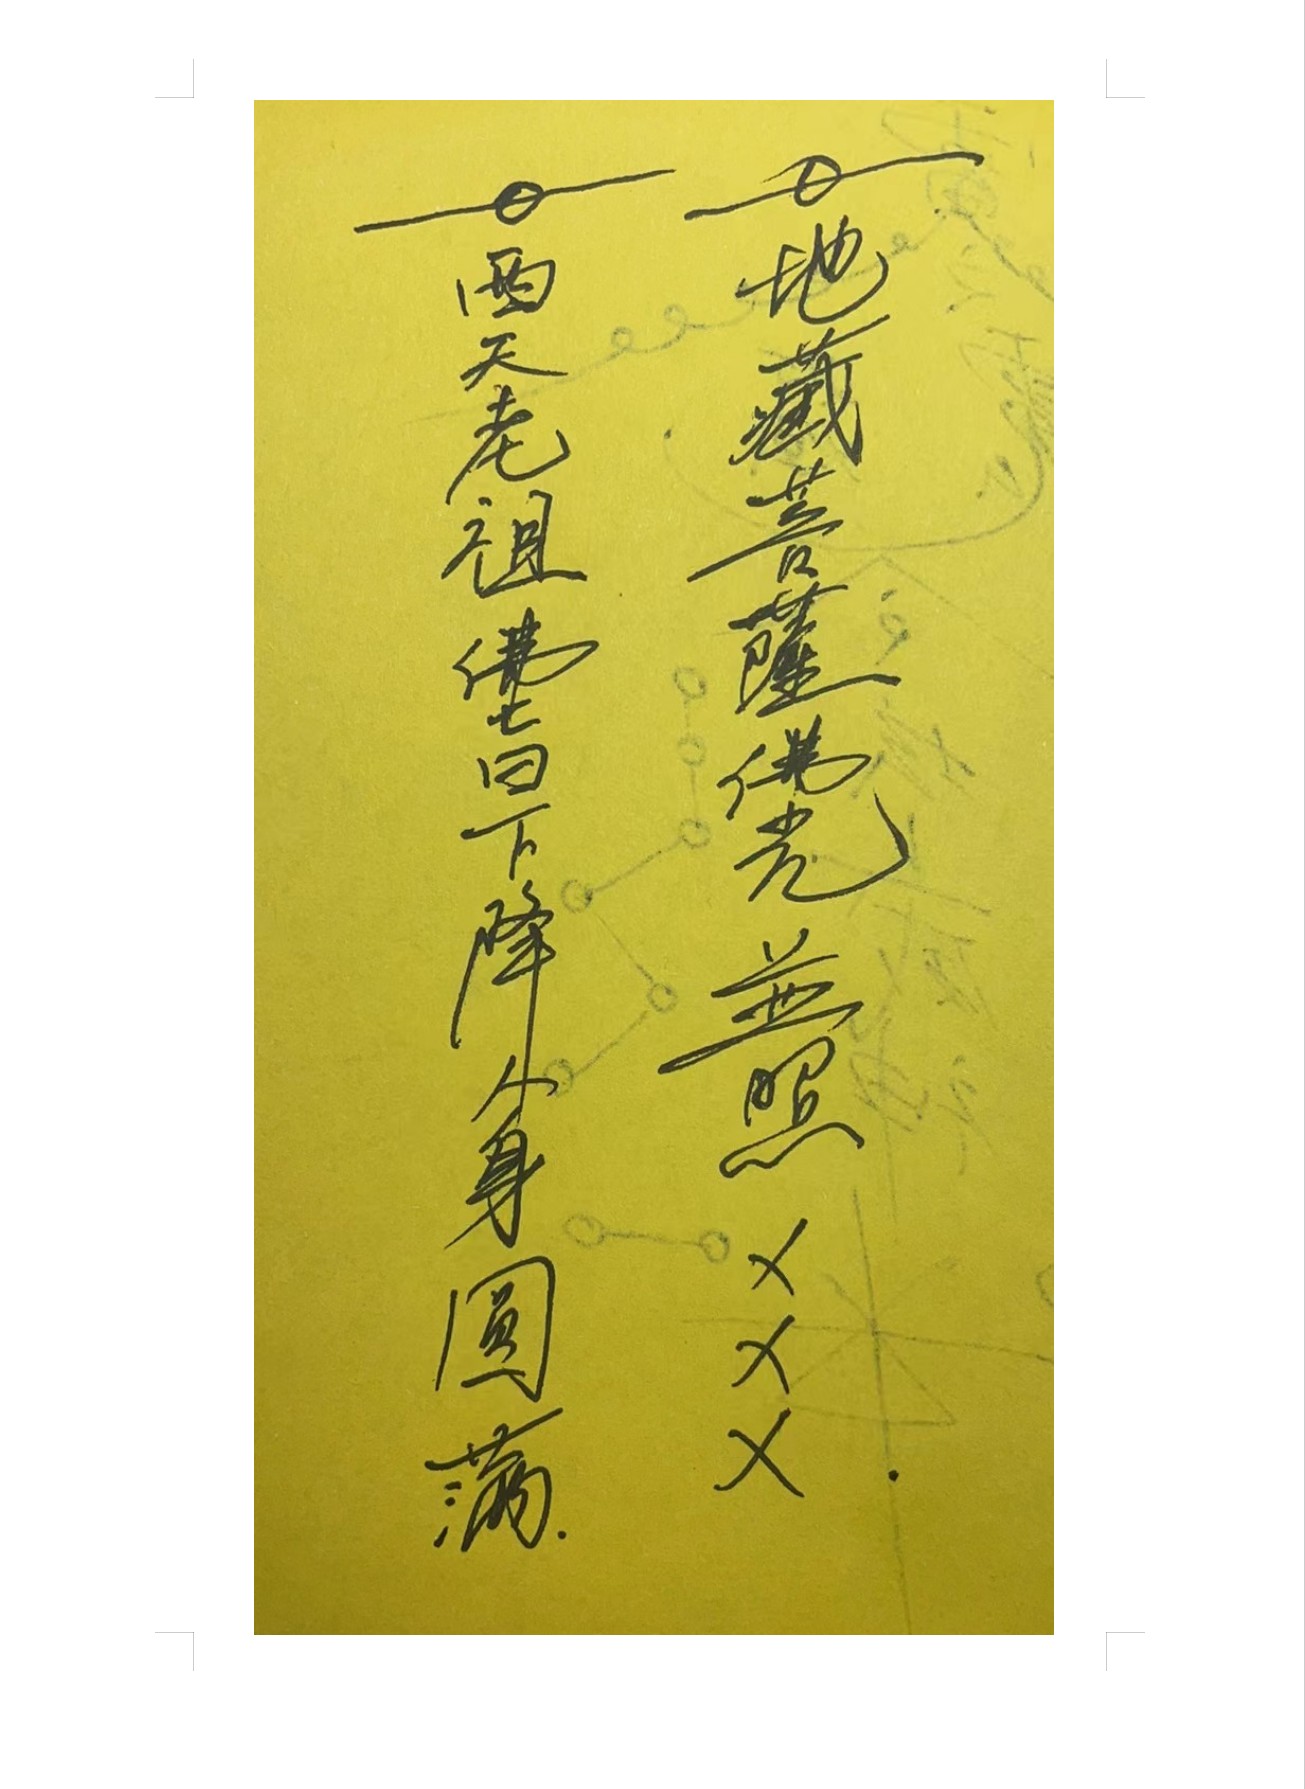 地藏菩薩佛光並照×××.
西天老祖佛七日下降人身圓滿.